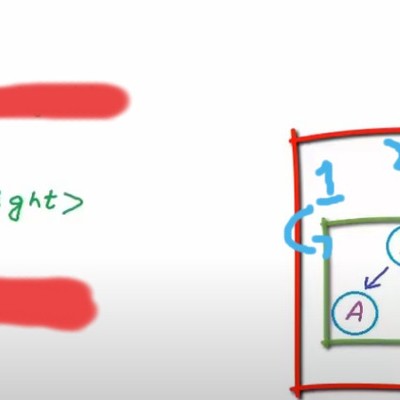 ght>
1
A